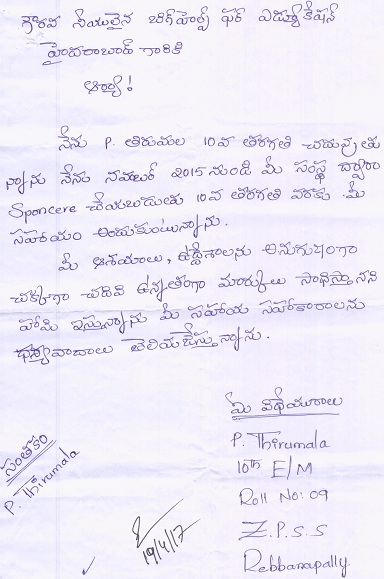 గౌరవ నీయులైన బిగ్‌హెల్ప్ ఫర్ ఎడ్యుకేషన్
హైదరాబాద్ గారికి
ఆర్యా!
నేను P. తిరుమల 10వ తరగతి చదువుతు
న్నాను నేను నవంబర్ 2015 నుండి మీ సంస్థ ద్వారా
Sponcere చేయబడుతు 10వ తరగతి వరకు మీ
సహాయం అందుకుంటున్నాను.
మీ ఆశయాలు, ఉద్దేశాలను అనుగుణంగా
చక్కగా చదివి ఉన్నతంగా మార్కులు సాధిస్తానని
హామి ఇస్తున్నాను మీ సహాయ సహకారాలను
ధన్యవాదాలు తెలియజేస్తున్నాను.
మీ విధేయురాలు
P. Thirumala
10th E/M
Roll No: 09
Z.P.S.S
Rebbanapally.
సంతకం
P. Thirumala
19/4/17